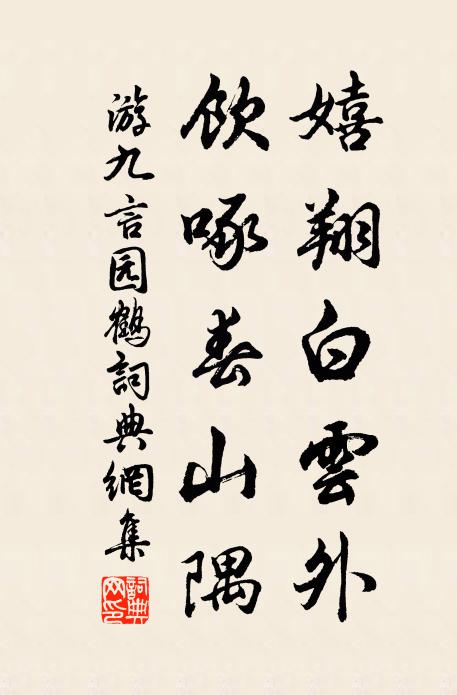 嬉翔白雲外
飲啄春山隅
游九言园鶴詞典網集
詞典網印